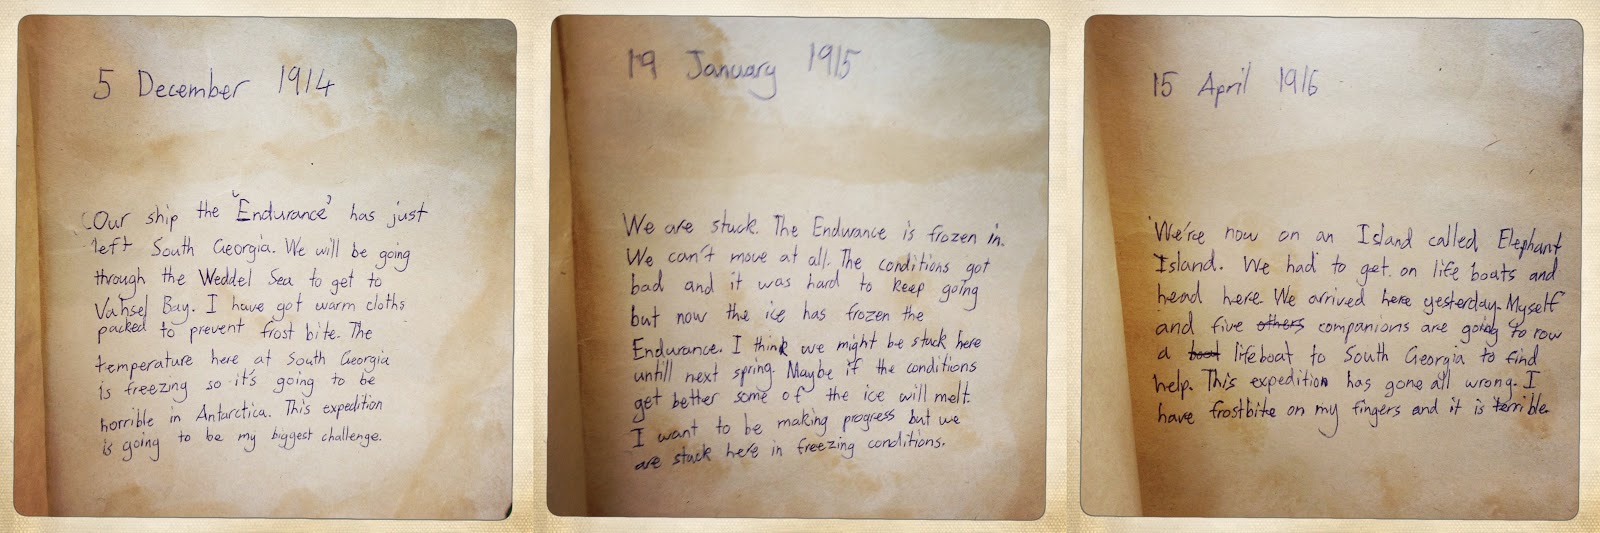 5 December 1914
Our ship the "Endurance" has just
left South Georgia. We will be going
through the Weddel Sea to get to
Vahsel Bay. I have got warm cloths
packed to prevent frost bite. The
temperature here at South Georgia
is freezing so it's going to be
horrible in Antarctica. This expedition
is going to be my biggest challenge.
19 January 1915
We are stuck. The Endurance is frozen in.
We can't move at all. The conditions got
bad and it was hard to keep going
but now the ice has frozen the
Endurance. I think we might be stuck here
untill next spring. Maybe if the conditions
get better some of the ice will melt.
I want to be making progress but we
are stuck here in freezing conditions.
15 April 1916
We're now on an Island called Elephant
Island. We had to get on life boats and
head here. We arrived here yesterday. Myself
and five others companions are going to row
a boat lifeboat to South Georgia to find
help. This expedition has gone all wrong. I
have frostbite on my fingers and it is terrible.